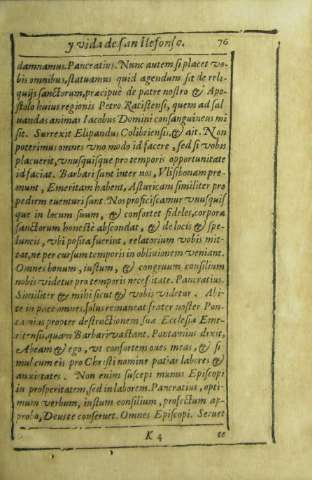 y vida de san Ilefonso. 76
damnamus. Pancratius. Nunc autem si placet vo-
bis omnibus, statuamus quid agendum sit de reli-
quijs sanctorum, præcipuè de patre nostro & Apo-
stolo huius regionis Petro Ratistensi, quem ad sal
uandas animas Iacobus Domini consanguineus mi
sit. Surrexit Elipandus Colibriensis, & ait. Non
poterimus omnes vno modo id facere, sed si vobis
placuerit, vnusquisque pro temporis opportunitate
id faciat. Barbari sunt inter nos, Vlisibonam pre-
munt, Emeritam habent, Asturicam similiter pro
pediem euenturi sunt. Nos proficiscamur vnusquis
que in locum suum, & confortet fideles, corpora
sanctorum honestè abscondat, & de locis & spe-
luncis, vbi posita fuerint, relatorium vobis mit-
tat, ne per cursum temporis in obliuionem veniant.
Omnes bonum, iustum, & congruum consilium
nobis videtur pro temporis necessitate. Pancratius.
Similiter & mihi sicut & vobis videtur. Abi-
te in pace omnes, solus remaneat frater noster Pon-
tamius propter destructionem sua Ecclesia Eme-
ritensis, quam Barbari vastant. Pontamius dixit,
Abeam & ego, vt confortem oues meas, & si
mul cum eis pro Christi nomine patiar labores &
anxietates. Non enim suscepi munus Episcopi
in prosperitatem, sed in laborem. Pancratius, opti-
mum verbum, iustum consilium, profectum ap-
probo, Deus te conseruet. Omnes Episcopi. Seruet
K 4 te